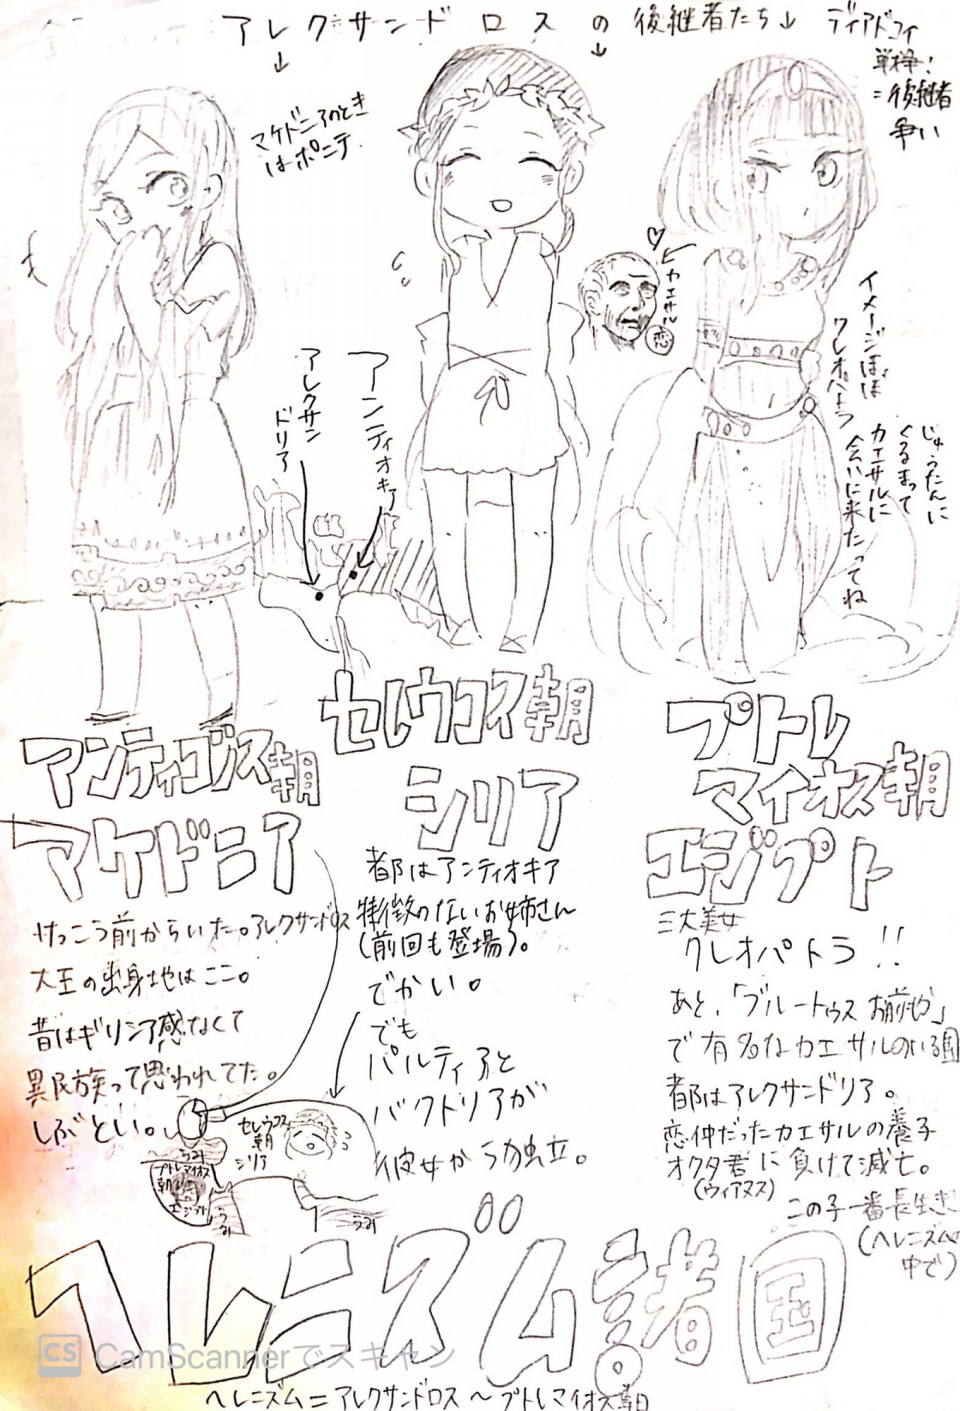 アレクサンドロスの後継者たち↓
ディアドコイ
戦争!
=後継者
争い
マケドニアのとき
はポニテ
カエサル
恋
イメージほぼ
クレオパトラ
じゅうたんに
くるまって
カエサルに
会いに来たってね
アレクサン
ドリア
アンティオキア
アンティゴノス朝
マケドニア
けっこう前からいた。アレクサンドロス
大王の出身地はここ。
昔はギリシア感なくて
異民族って思われてた。
しぶとい。
セレウコス朝
シリア
都はアンティオキア
特徴のないお姉さん
(前回も登場)。
でかい。
でも
パルティアと
バクトリアが
彼女から独立。
セレウコス
朝
シリア
うみ
プトレマイオス
朝
エジプト
うみ
うみ
プトレ
マイオス朝
エジプト
三大美女
クレオパトラ!!
あと、「ブルートゥス お前もか」
で有名なカエサルのいる国
都はアレクサンドリア。
恋仲だったカエサルの養子
オクタ君に負けて滅亡。
(ウィアヌス)
この子一番長生き
(ヘレニズムの
中で)
ヘレニズム諸国
CS CamScannerでスキャン
ヘレニズム=アレクサンドロス～プトレマイオス朝